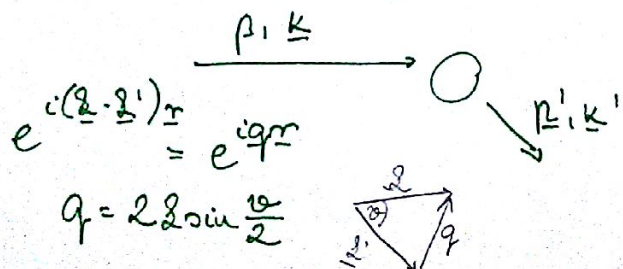 p, k
p', k'
e^{i(k-k')r} = e^{iqr}
q = 2k sin ϑ/2
k
ϑ
k'
q